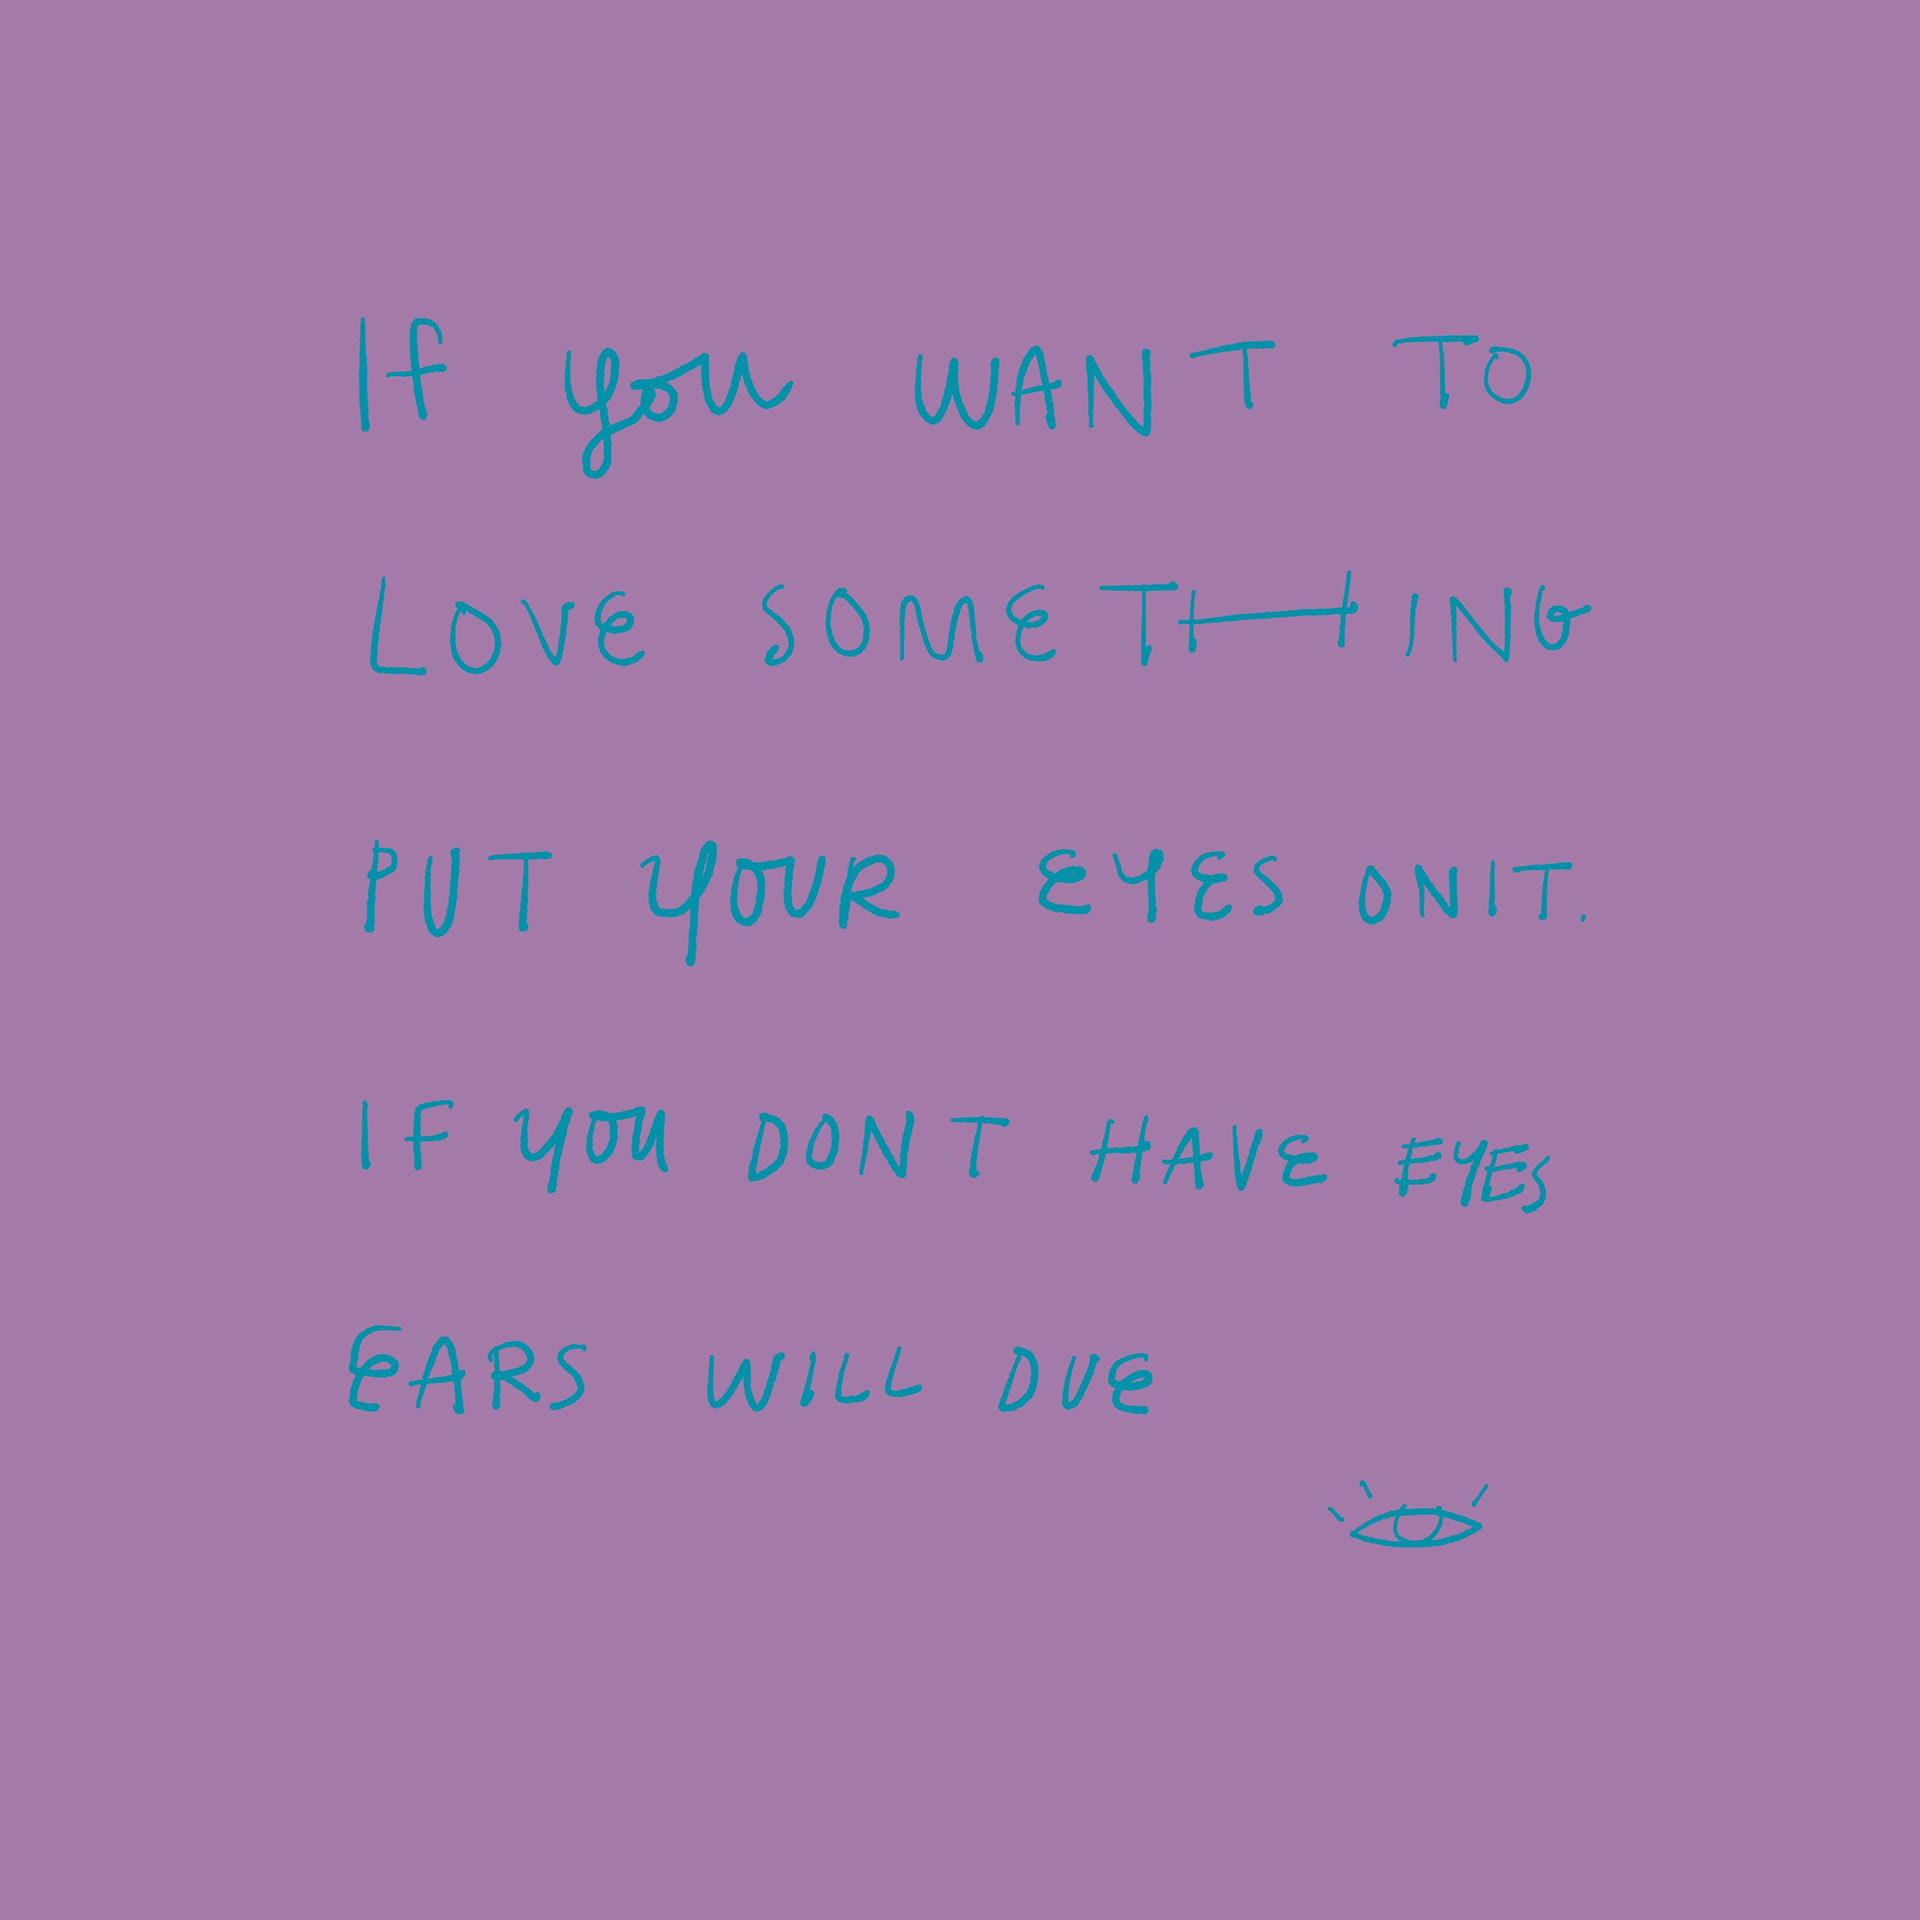 If you WANT TO
LOVE SOMETHING
PUT YOUR EYES ON IT.
IF YOU DONT HAVE EYES
EARS WILL DUE